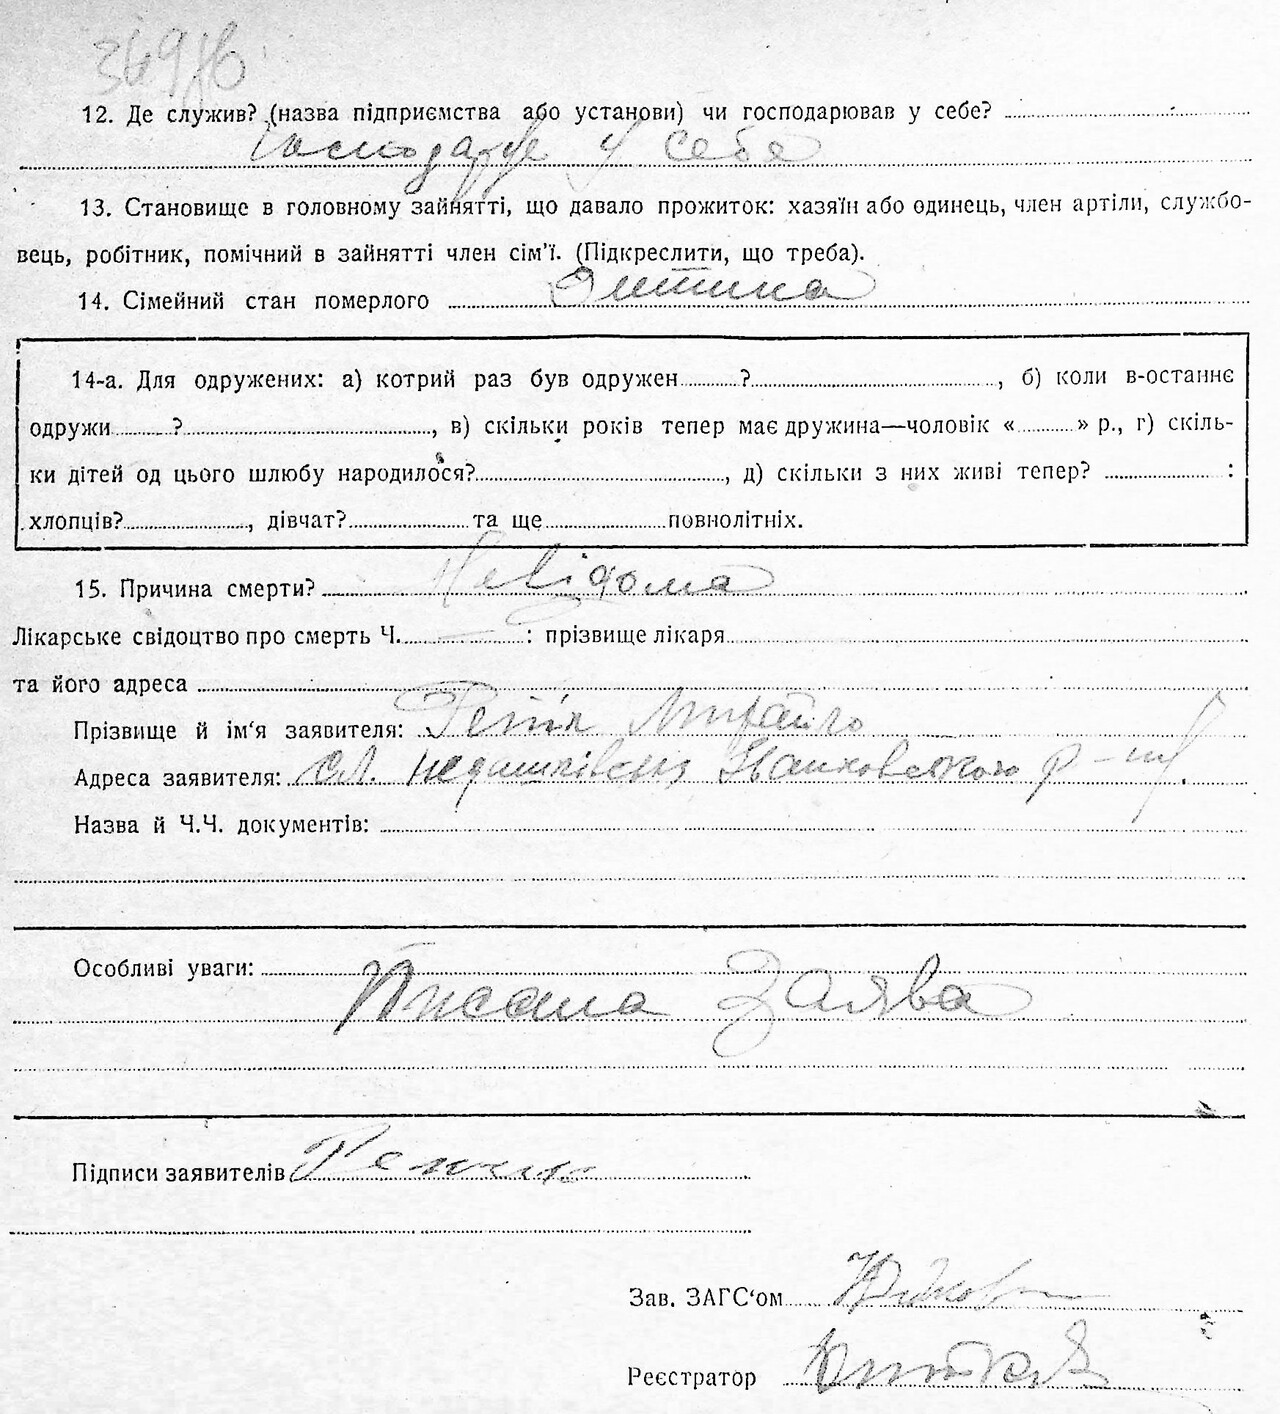 12. Де служив? (назва підприємства або установи) чи господарював у себе?
Господарує у себе
13. Становище в головному зайнятті, що давало прожиток: хазяїн або одинець, член артіли, службо-
вець, робітник, помічний в зайнятті член сім'ї. (Підкреслити, що треба).
14. Сімейний стан померлого Дитина
14-а. Для одружених: а) котрий раз був одружен ? , б) коли в-останнє
одружи ? , в) скільки років тепер має дружина—чоловік « » р., г) скіль-
ки дітей од цього шлюбу народилося? , д) скільки з них живі тепер? :
хлопців? , дівчат? та ще повнолітніх.
15. Причина смерти? Невідома
Лікарське свідоцтво про смерть Ч. : прізвище лікаря
та його адреса
Прізвище й ім'я заявителя: Михайло
Адреса заявителя: Іванковського р-ну
Назва й Ч.Ч. документів:
Особливі уваги:
Писана Заява
Підписи заявителів
Зав. ЗАГС'ом
Реєстратор